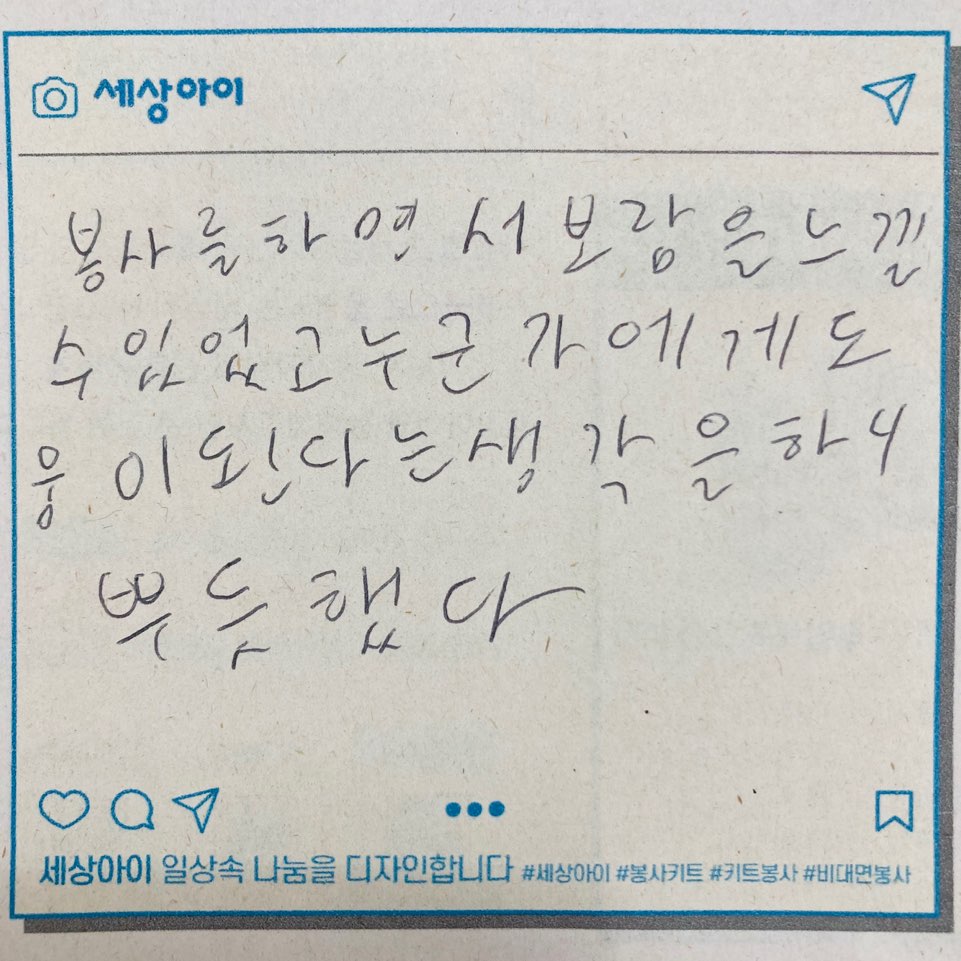 세상아이
봉사를하면서보람을느낄
수있었고누군가에게도
움이된다는생각을하니
뿌듯했다
세상아이 일상속 나눔을 디자인합니다 #세상아이 #봉사키트 #키트봉사 #비대면봉사